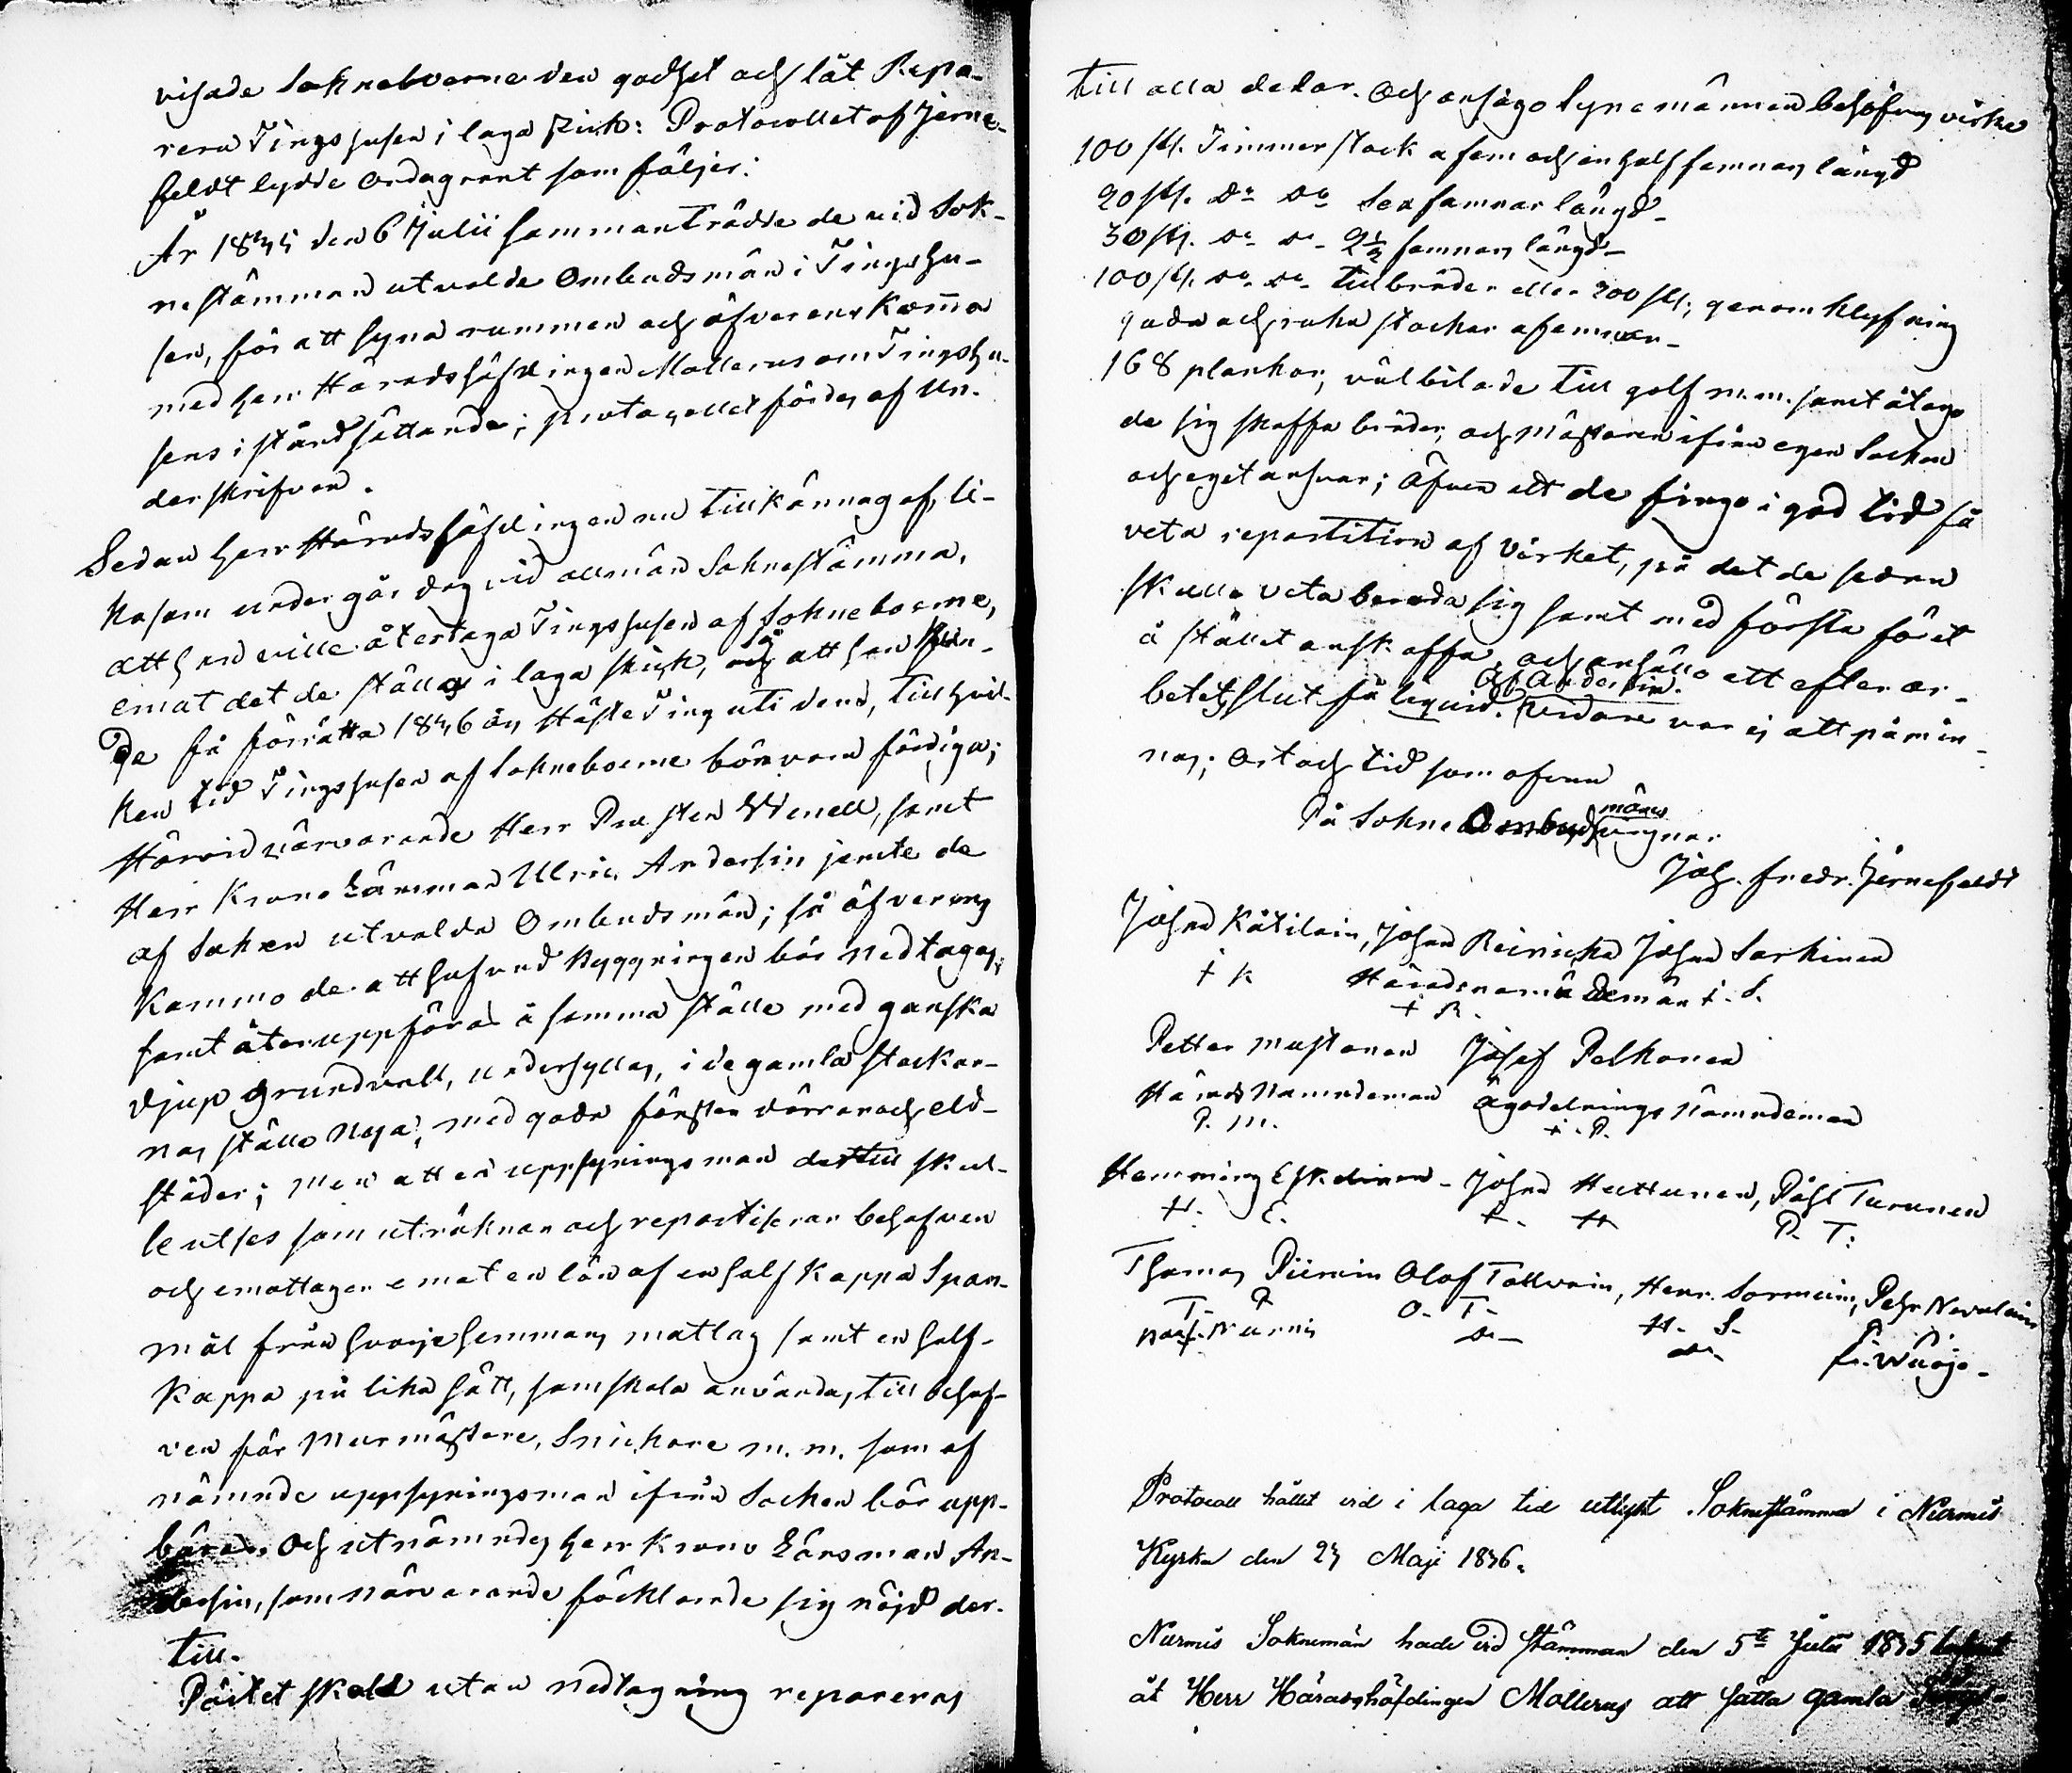 visade Sokneboerne den godhet och låt Repa-
rera Tingshusen i laga skick: Protocollet af Jerne-
feldt lydde Ordagrant som följer:
År 1845 den 6 Julii sammanträdde de vid Sok-
nestämman utvalde Ombudsmän i Tingshu-
sen, för att syna rummen och öfverenskomma
med herr Häradshöfdingen Mollerus om Tingshu-
sens i ståndsättande; protocollet fördes af Un-
derskrifven.
Sedan herr Häradshöfdingen nu tillkännagaf, li-
kasom under går dag vid allmän Soknestämma,
att han ville återtaga Tingshusen af Sokneboerne,
emot det de ställas i laga skick, och så att han skul-
de få förrätta 1846 års Höste Ting uti dem, till hvil-
ken tid Tingshusen af Sokneboerne böra vara färdiga;
Härvid närvarande Herr Prosten Wenell, samt
Herr Krono Länsman Ulric Andersin jemte de
af Soknen utvalda Ombudsmän; så öfverens
kommo de att hufvud Byggningen bör nedtagas,
samt återuppföras å samma ställe med ganska
djup Grundvall, undersyllas, i de gamla stockar-
nas ställe Nya, med goda fönster dörrar och eld-
städer; Men att en uppsyningsman dertill skul-
le utses som uträknar och repartiserar behofven
och emottager emot en lön af en half kappa Span-
mål från hvarje hemmans matlag samt en half-
kappa på lika sätt, som skola användas till behof-
ven för Murmästare, Snickare m. m. som af
nämnde uppsyningsman ifrån Socken bör upp-
bäras. Och utnämndes herr Krono Länsman An-
dersin, som närvarande förklarade sig nöjd der-
till.
Pörtet skall utan nedtagning repareras
till alla delar. Och ansågo Synemännen behöfvas virke
100 st. Timmerstock a fem och en half famnars längd
20 st. do do Sex famnar längd-
30 st. do do - 2½ famnars längd-
100 st. do do till bräder eller 200 st. genom klyfning
goda och raka stockar a famnar-
168 plankor, väl bilade till golf m.m. samt åtogo
de sig skaffa bräder, och Mästaren ifrån egen Socken
och eget ansvar; Äfven att de fingo i god tid få
veta repartition af Virket, på det de sedan
skulle veta bereda sig samt med första föret
å stället anskaffa, och anhöllo att efter ar-
betets slut få liquid. af Andersin. Vidare var ej att påmin-
nas; Ort och tid som ofvan
På Sokne Ombudsmäns vägnar
Joh. Fredr. Jernefeldt
Johan Kätilain, Johan Reinicka Johan Sarkinen
+ K Häradsnämndemän i. S.
+ R.
Petter Mustonen Josef Pelkonen
Härads Namndeman ägodelnings Nämndeman
P. M. +. P.
Hemming Eskelinen - Johan Huttunen, Påhl Turunen
H. E. +. H P. T:
Thomas Piirain Olof Tolvain, Henr. Sormuin, Pehr Nevalain
T. P O. T. H. S. P.
do do
Protocoll hållit vid i laga tid utlyst Soknestämma i Nurmis
Kyrka den 24 Maji 1846.
Nurmis Soknemän hade vid Stämman den 5te Julii 1845 lofvat
åt Herr Häradshöfdingen Mollerus att sätta gamla Tings-